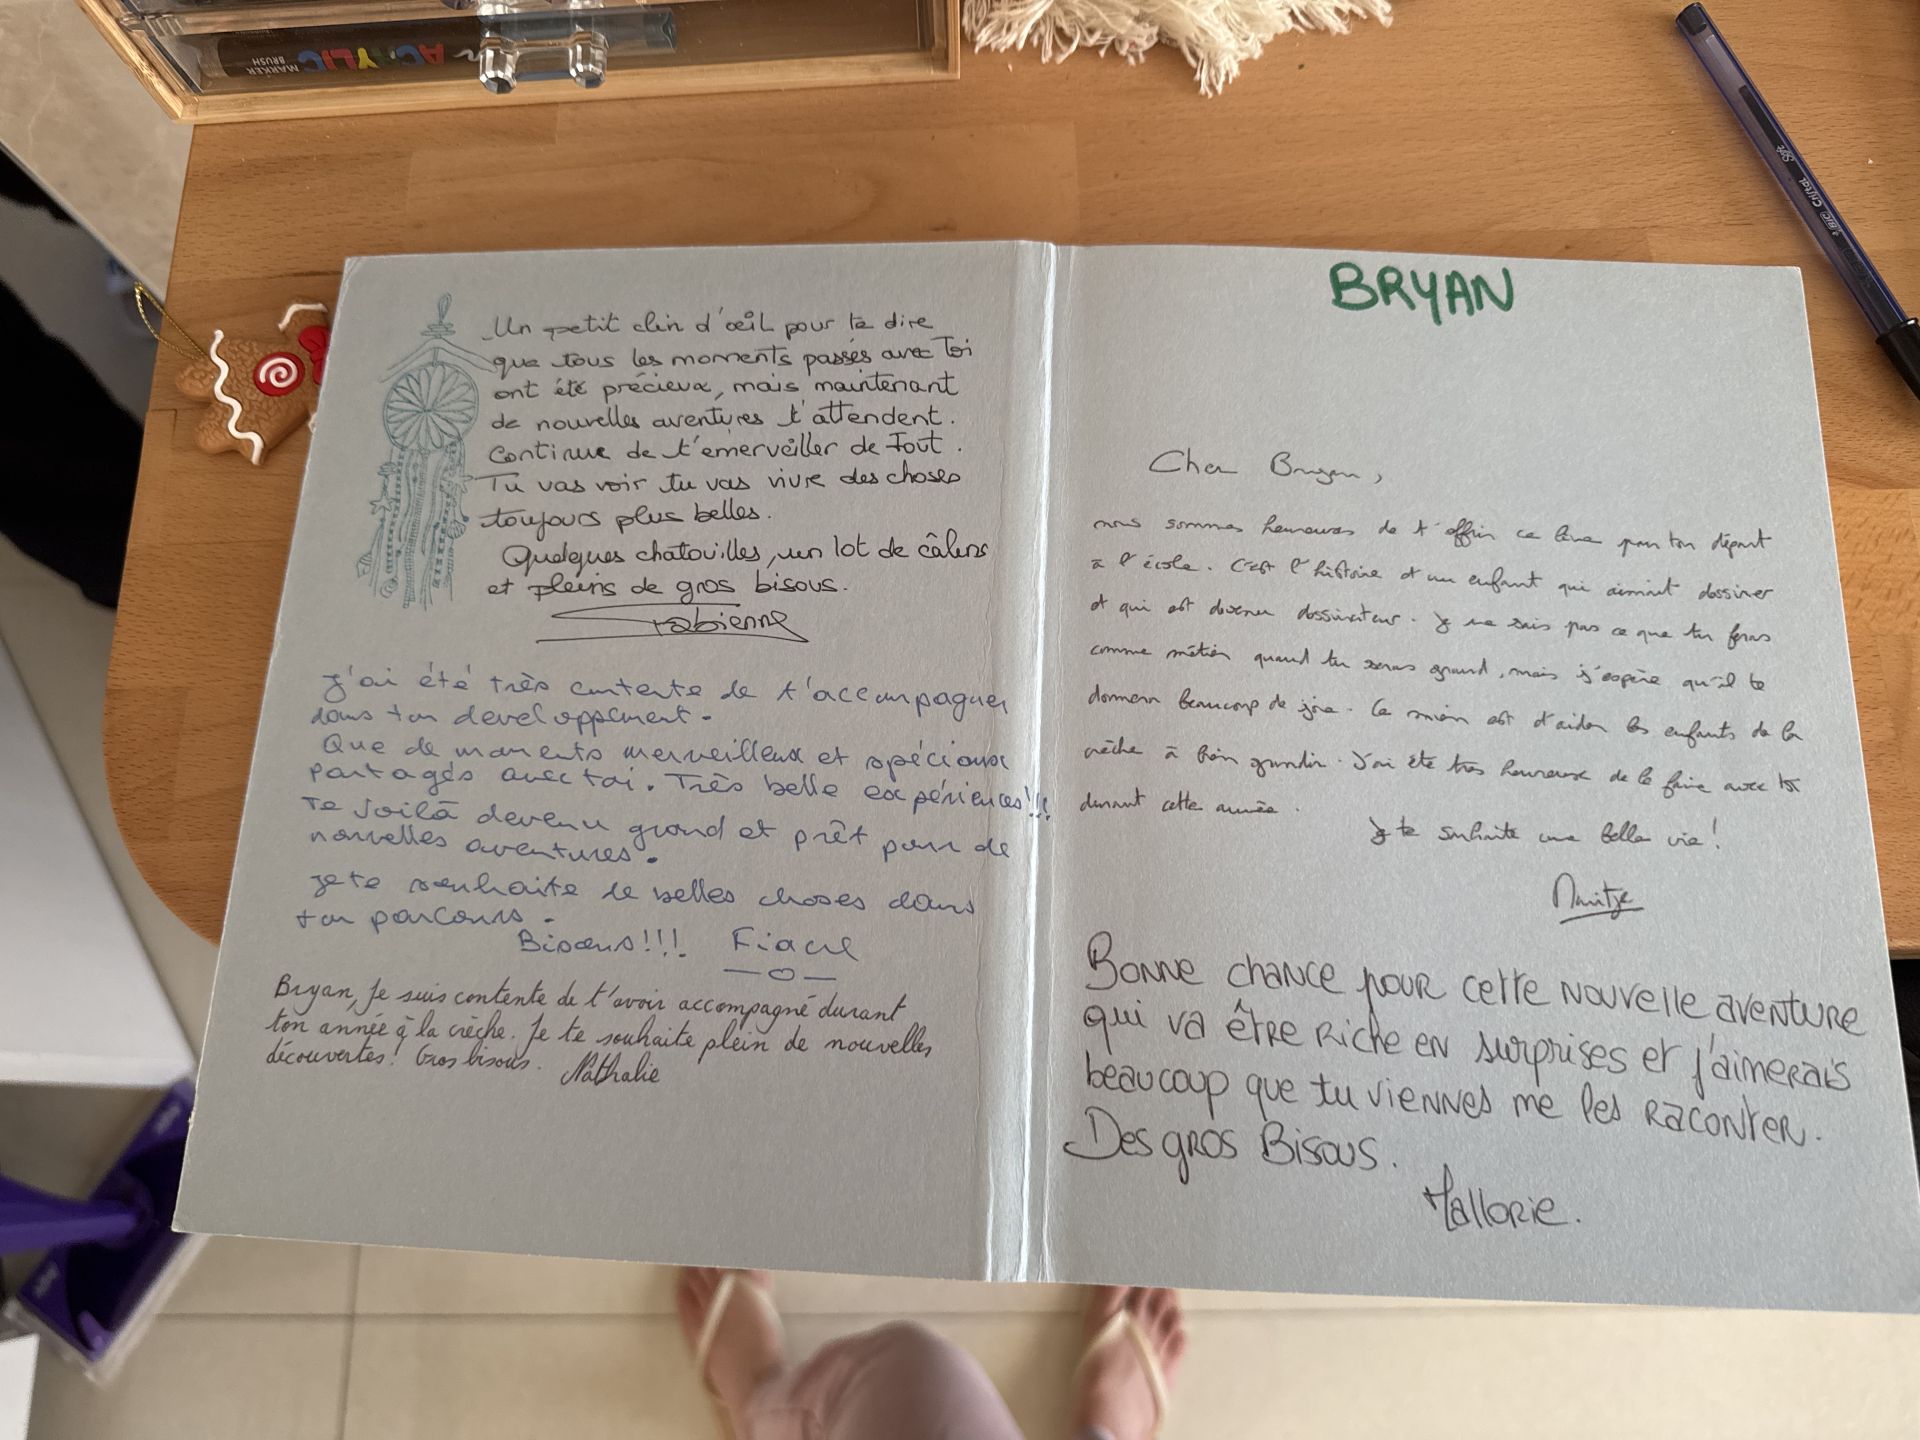 ACRYLIC
MARKER
BRUSH
BIC Cristal
Soft
Un petit clin d'œil pour te dire
que tous les moments passés avec Toi
ont été précieux, mais maintenant
de nouvelles aventures t'attendent.
Continue de t'émerveiller de Tout.
Tu vas voir tu vas vivre des choses
toujours plus belles.
Quelques chatouilles, un lot de câlins
et pleins de gros bisous.
Fabienne
J'ai été très contente de t'accompagner
dans ton developpement.
Que de moments merveilleux et spéciaux
partagés avec toi. Très belle expériences!!!
Te voilà devenu grand et prêt pour de
nouvelles aventures.
Je te souhaite de belles choses dans
ton parcours.
Bisous!!! Fiacre
Bryan, Je suis contente de t'avoir accompagné durant
ton année à la crèche. Je te souhaite plein de nouvelles
découvertes! Gros bisous. Nathalie
BRYAN
Cher Bryan,
nous sommes heureuses de t'offrir ce livre pour ton départ
à l'école. C'est l'histoire d'un enfant qui aimait dessiner
et qui est devenu dessinateur. Je ne sais pas ce que tu feras
comme métier quand tu seras grand, mais j'espère qu'il te
donnera beaucoup de joie. Le mien est d'aider les enfants de la
crèche à bien grandir. J'ai été très heureuse de le faire avec toi
durant cette année.
Je te souhaite une belle vie!
Maritje
Bonne chance pour cette nouvelle aventure
qui va être riche en surprises et j'aimerais
beaucoup que tu viennes me les raconter.
Des gros Bisous.
Mallorie.